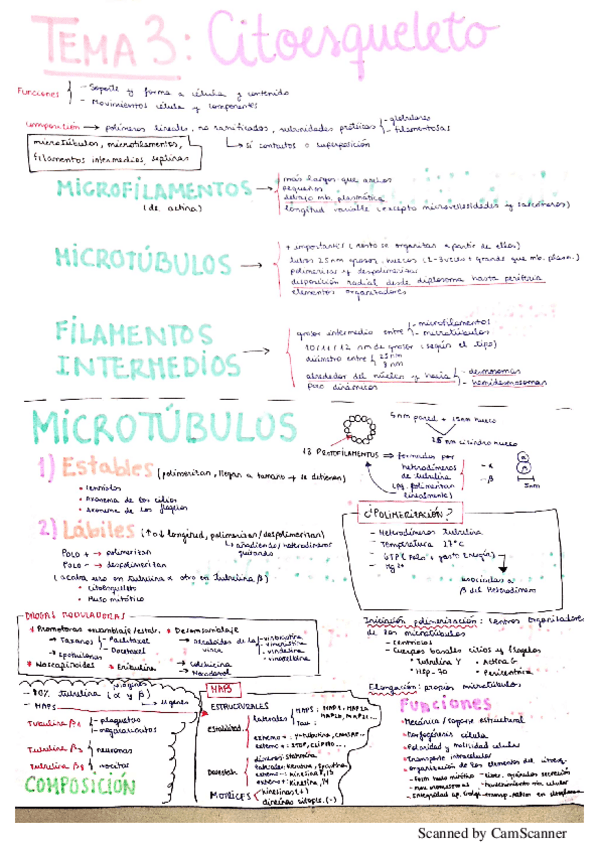 TEMA 3: Citoesqueleto
Funciones
- Soporte y forma a célula y contenido
- Movimientos célula y componentes
composición → polímeros lineales, no ramificados, subunidades proteicas
- globulares
- filamentosas
microtúbulos, microfilamentos,
filamentos intermedios, septinas
↳ sí contactos o superposición
MICROFILAMENTOS →
(de actina)
más largos que anchos
pequeños
debajo mb. plasmática
longitud variable (excepto microvellosidades y sarcómeros)
MICROTÚBULOS →
+ importantes (resto se organizan a partir de ellos)
tubos 25nm grosor, huecos
polimerizar y despolimerizar
disposición radial desde diplosoma hasta periferia
elementos organizadores
FILAMENTOS
INTERMEDIOS →
grosor intermedio entre
- microfilamentos
- microtúbulos
10/11/12 nm de grosor (según el tipo)
diámetro entre
25nm
alrededor del núcleo y hacia
- desmosomas
- hemidesmosomas
poco dinámicos
MICROTÚBULOS
5nm pared + 15nm hueco
25 nm cilindro hueco
13 PROTOFILAMENTOS → formados por
heterodímeros
de tubulina
- α
- β
(se polimerizan
linealmente)
5nm
1) Estables (polimerizan, llegan a tamaño y se detienen)
• centriolos
• Axonema de los cilios
• Axonema de los flagelos
2) Lábiles (↑o↓ longitud, polimerizan/despolimerizan)
↳ añadiendo/heterodímeros
quitando
POLO + → polimerizan
POLO - → despolimerizan
(acaba uno en tubulina α otro en tubulina β)
• citoesqueleto
• Huso mitótico
¿POLIMERIZACIÓN?
- Heterodímeros tubulina
- Temperatura 37°C
- GTP (Polo + gasto Energía)
- Mg2+
asociadas a
β del heterodímero
DROGAS MODULADORAS
• Promotoras ensamblaje/estab.
→ Taxanos
- Paclitaxel
- Docetaxel
→ Epothilonas
• Noscapinoides
• Desensamblaje
→ Alcaloides de la
vinca
- vinblastina
- vincristina
- vindesina
- vinorelbina
• Eribulina
→ Colchicina
→ Nocodazol
Iniciación polimerización: Centros Organizadores
de los microtúbulos
- centriolos
- Cuerpos basales cilios y flagelos
* Tubulina γ
* Hsp-70
* Pericentrina
Elongación: propios microtúbulos
- 90% tubulina (α y β)
- MAPS
Tubulina β1
- plaquetas
- megacariocitos
Tubulina β3
- neuronas
Tubulina β8
- ovocitos
COMPOSICIÓN
MAPS
ESTRUCTURALES
estabilizad.
laterales
MAPS: MAP1, MAP2
Tau
extremo -: γ-tubulina, CAMSAP...
extremo +: STOP, CLIP170...
Desestab.
dímeros: stathmina
MOTRICES
kinesinas (+)
dineínas citopl. (-)
Funciones
• Mecánica / soporte estructural
• Morfogénesis célula
• Polaridad y motilidad celular
• transporte intracelular
• organización de los elementos del citoesq.
- form huso mitótico
Scanned by CamScanner